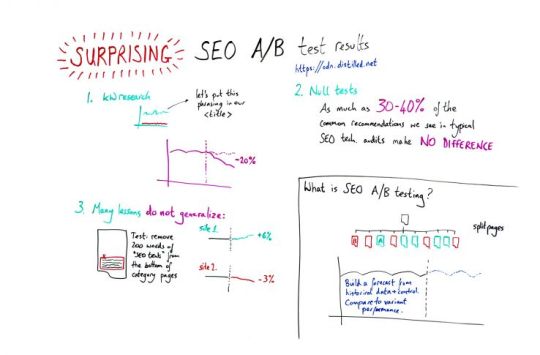 SURPRISING SEO A/B test results
https://odn.distilled.net
1. KW research
let's put this
phrasing in our
<title>
-20%
2. Null tests
As much as 30-40% of the
common recommendations we see in typical
SEO tech. audits make NO DIFFERENCE
3. Many lessons do not generalize:
Test: remove
200 words of
"SEO text" from
the bottom of
category pages
site 1.
+6%
site 2.
-3%
What is SEO A/B testing?
split pages
Build a forecast from
historical data + control.
Compare to variant
performance.